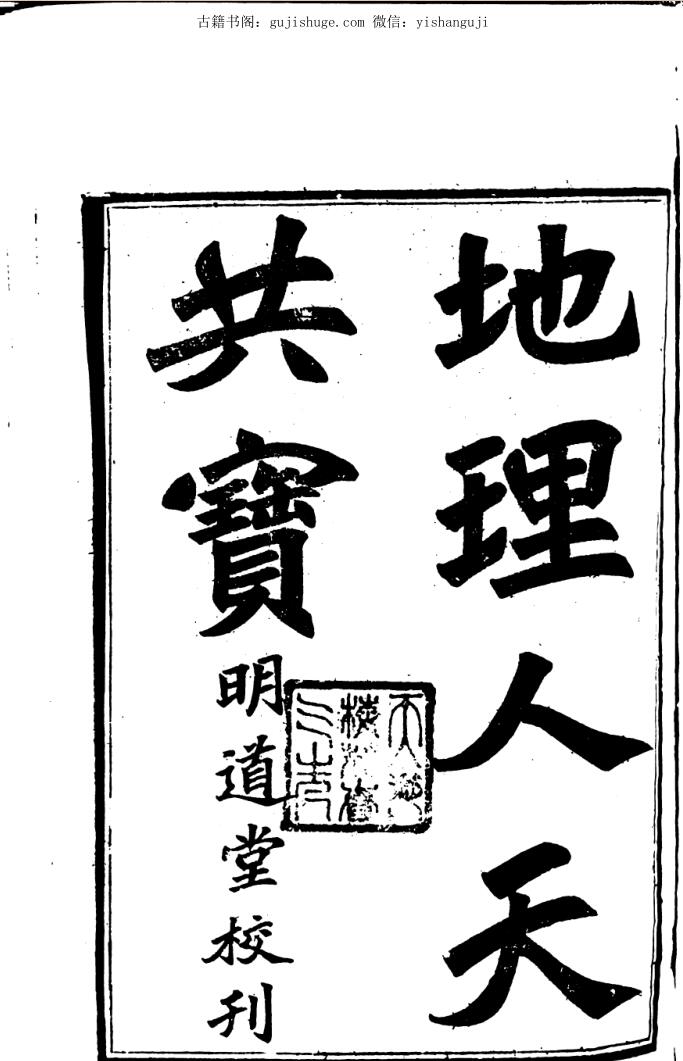 古籍书阁：gujishuge.com 微信：yishanguji
地理人天
共寶
明道堂校刊